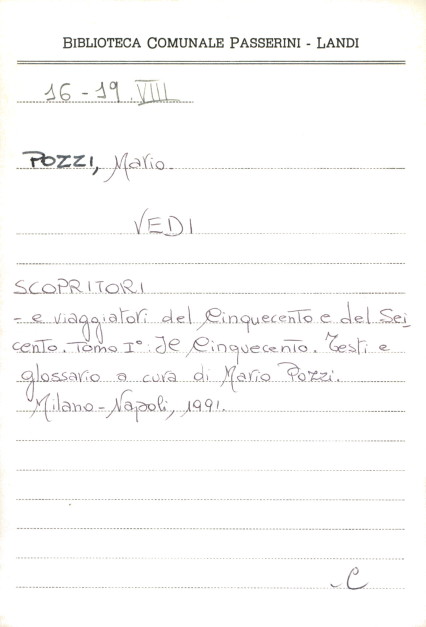 BIBLIOTECA COMUNALE PASSERINI - LANDI
16 - 19. VIII
POZZI, Mario.
VEDI
SCOPRITORI
- e viaggiatori del Cinquecento e del Sei_
cento. Tomo I°: Il Cinquecento. Testi e
glossario a cura di Mario Pozzi.
Milano - Napoli, 1991.
C